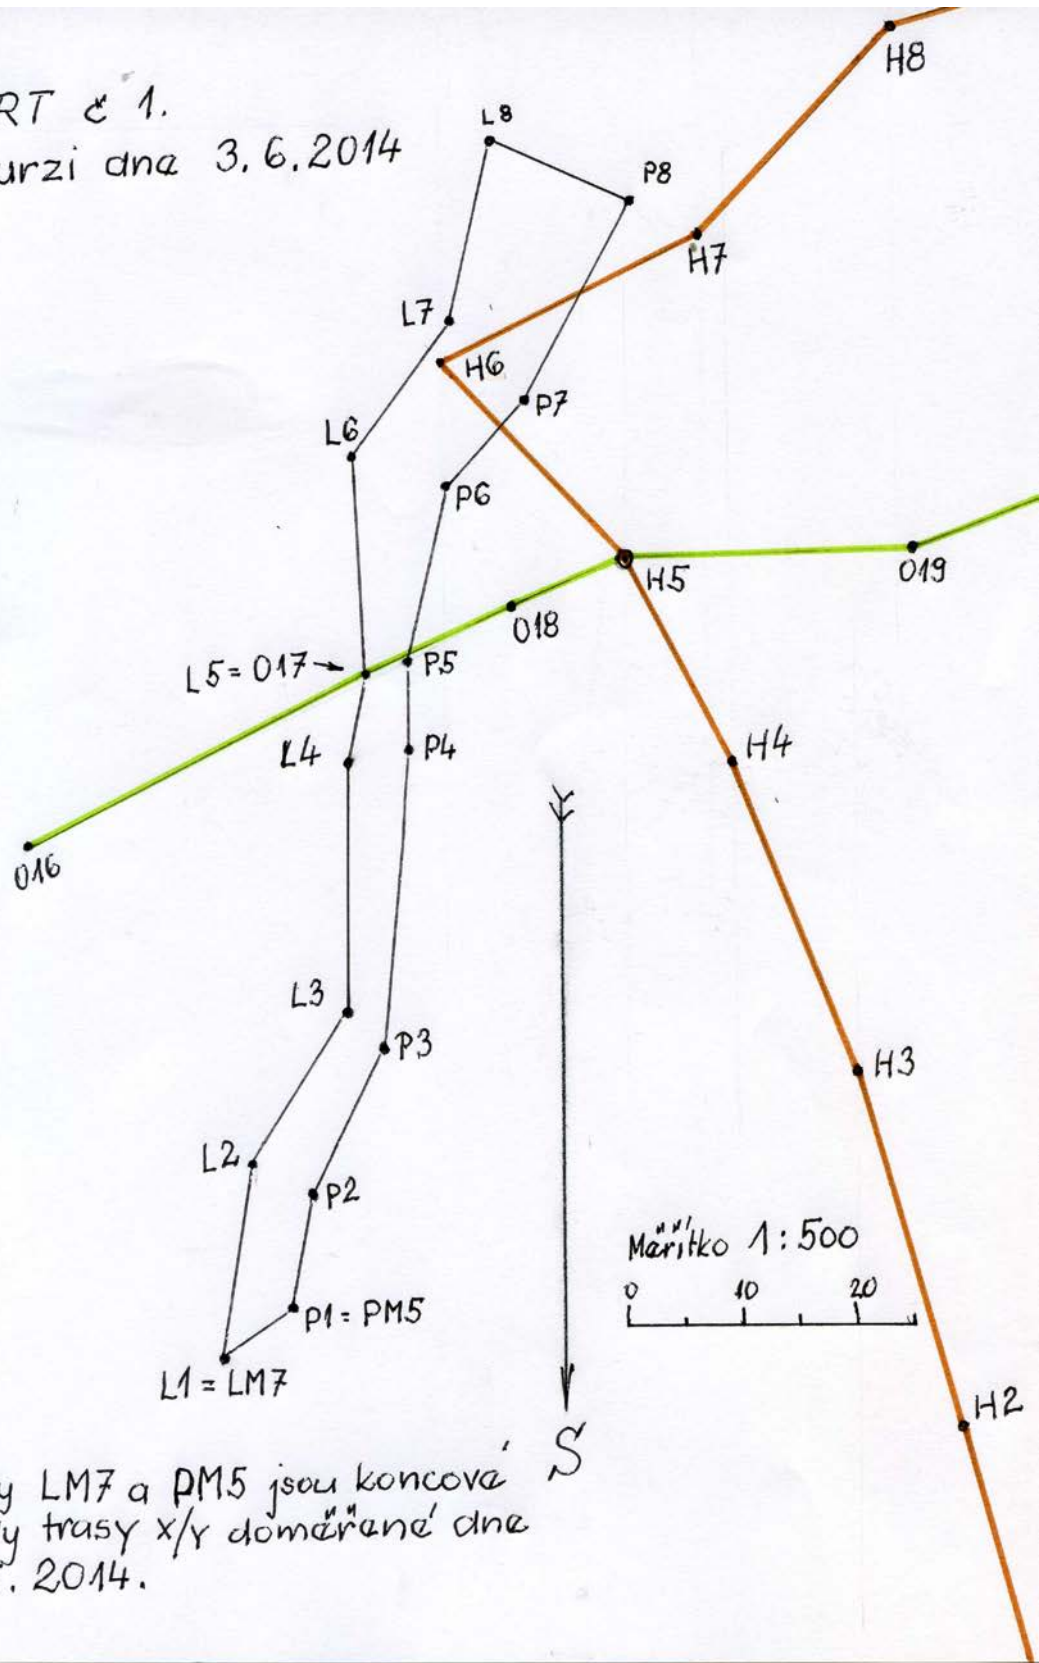 RT č 1.
urzi dne 3.6.2014
L8
P8
H8
H7
L7
H6
P7
L6
P6
H5
O19
O18
L5=O17→
P5
L4
P4
H4
O16
L3
P3
H3
L2
P2
Měřítko 1:500
0 10 20
P1=PM5
L1=LM7
H2
S
y LM7 a PM5 jsou koncové
y trasy x/y doměřené dne
. 2014.